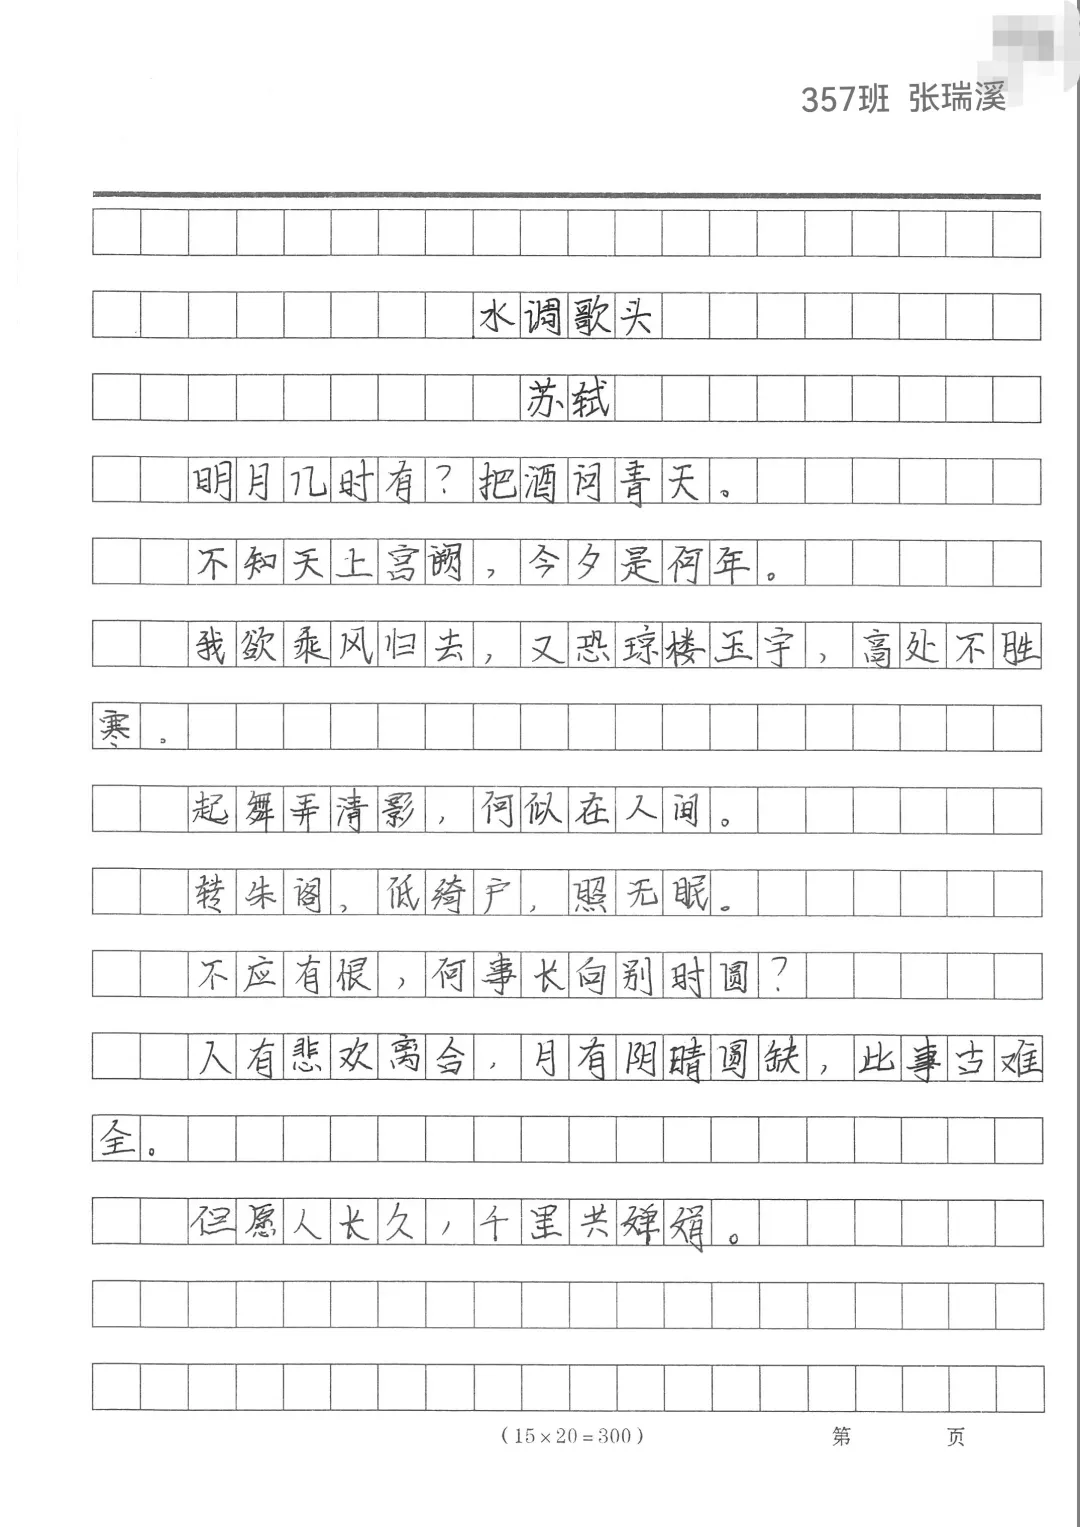 357班 张瑞溪
水调歌头
苏轼
明月几时有？把酒问青天。
不知天上宫阙，今夕是何年。
我欲乘风归去，又恐琼楼玉宇，高处不胜
寒。
起舞弄清影，何似在人间。
转朱阁，低绮户，照无眠。
不应有恨，何事长向别时圆？
人有悲欢离合，月有阴晴圆缺，此事古难
全。
但愿人长久，千里共婵娟。
(15×20=300) 第 页